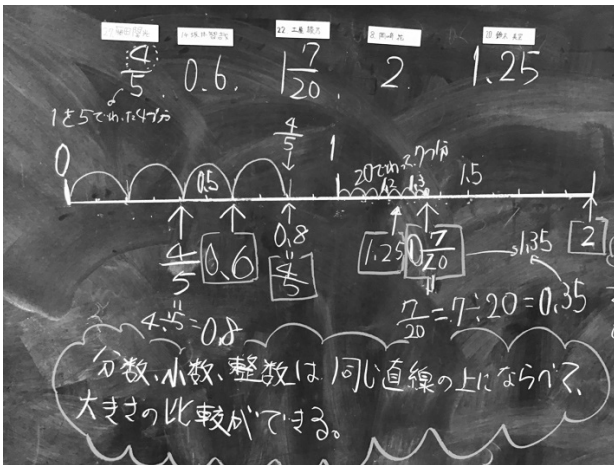 4/5 0.6. 1 7/20 2. 1.25
1を5でわった4つ分
4/5
0 1
20でわった7つ分
0.5 1.2 1.3 1.5
4/5 0.6 0.8 1.25 7/20 1.35 2
=
4/5
4÷5=0.8
7/20=7÷20=0.35
分数、小数、整数は、同じ直線の上にならべて、
大きさの比較ができる。